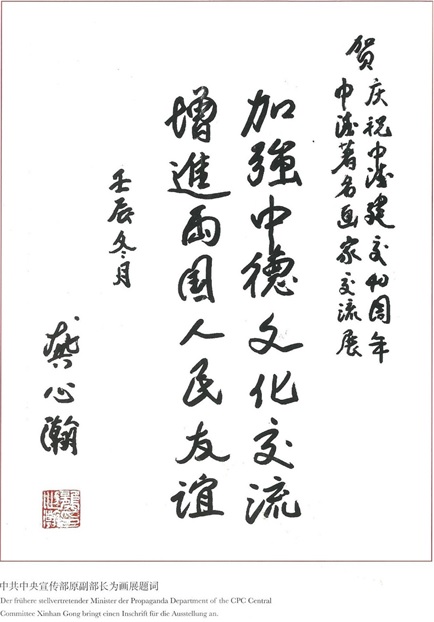 贺
庆祝中德建交40周年
中德著名画家交流展
加強中德文化交流
增進两国人民友谊
壬辰冬月
龚心瀚
中共中央宣传部原副部长为画展题词
Der frühere stellvertretender Minister der Propaganda Department of the CPC Central
Committee Xinhan Gong bringt einen Inschrift für die Ausstellung an.